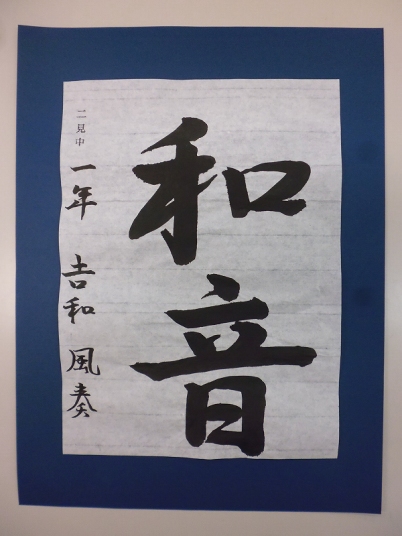 和音
二見中
一年 吉和 風奏